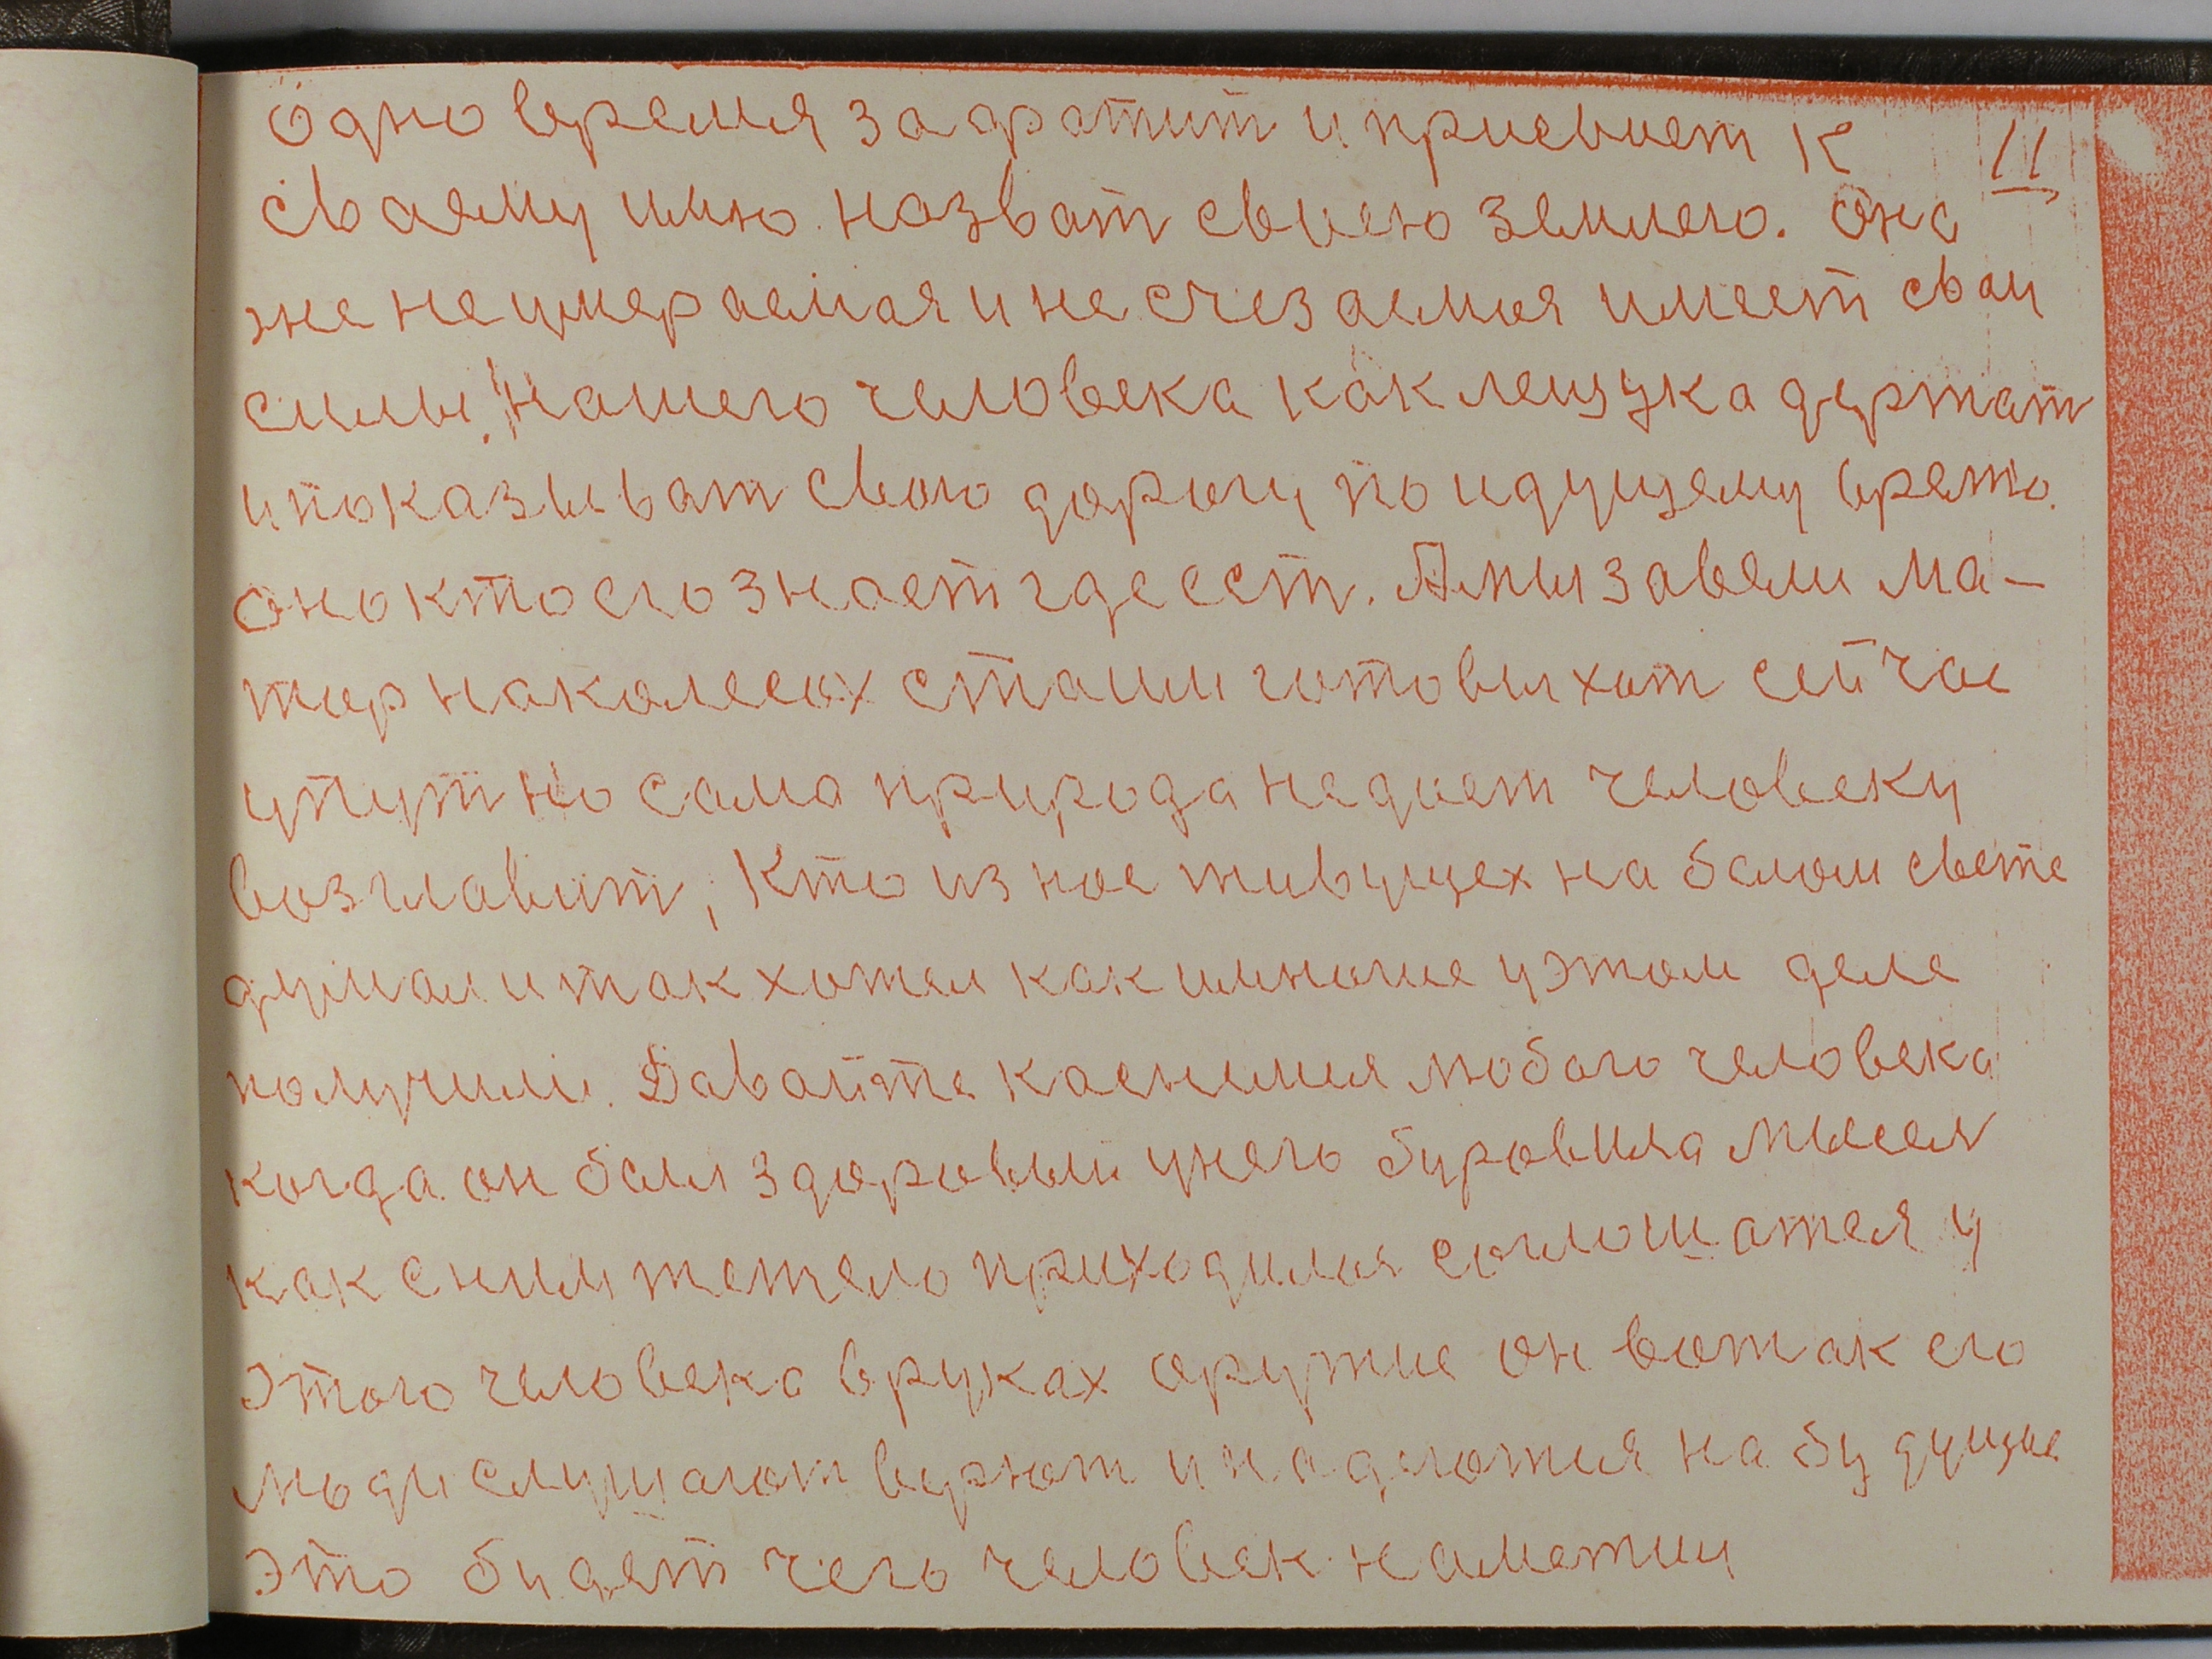 одно время захватит и присвоит к 11
сваему имю. назват своею землею. Она
же не умераемая и не счезаемая имеет сваи
силы. Нашего человека как лещука держат
и показыват свою дорогу по идущему время.
оно кто его знает где ест. А мы завели ма-
тор на колесах стали готовы хот сейчас
упут но сама природа не дает человеку
возглавит, Кто из нас живущех на белом свете
думал и так хотел как и многие у этом деле
получили. Давайте коснемся любого человека
когда он был здоровый у него буровила мысля
как с ним тежело приходилося соглошатся у
этого человека в руках оружие он вот так его
люди слушают верют и надеются на будущие
это будет чего человек наметил